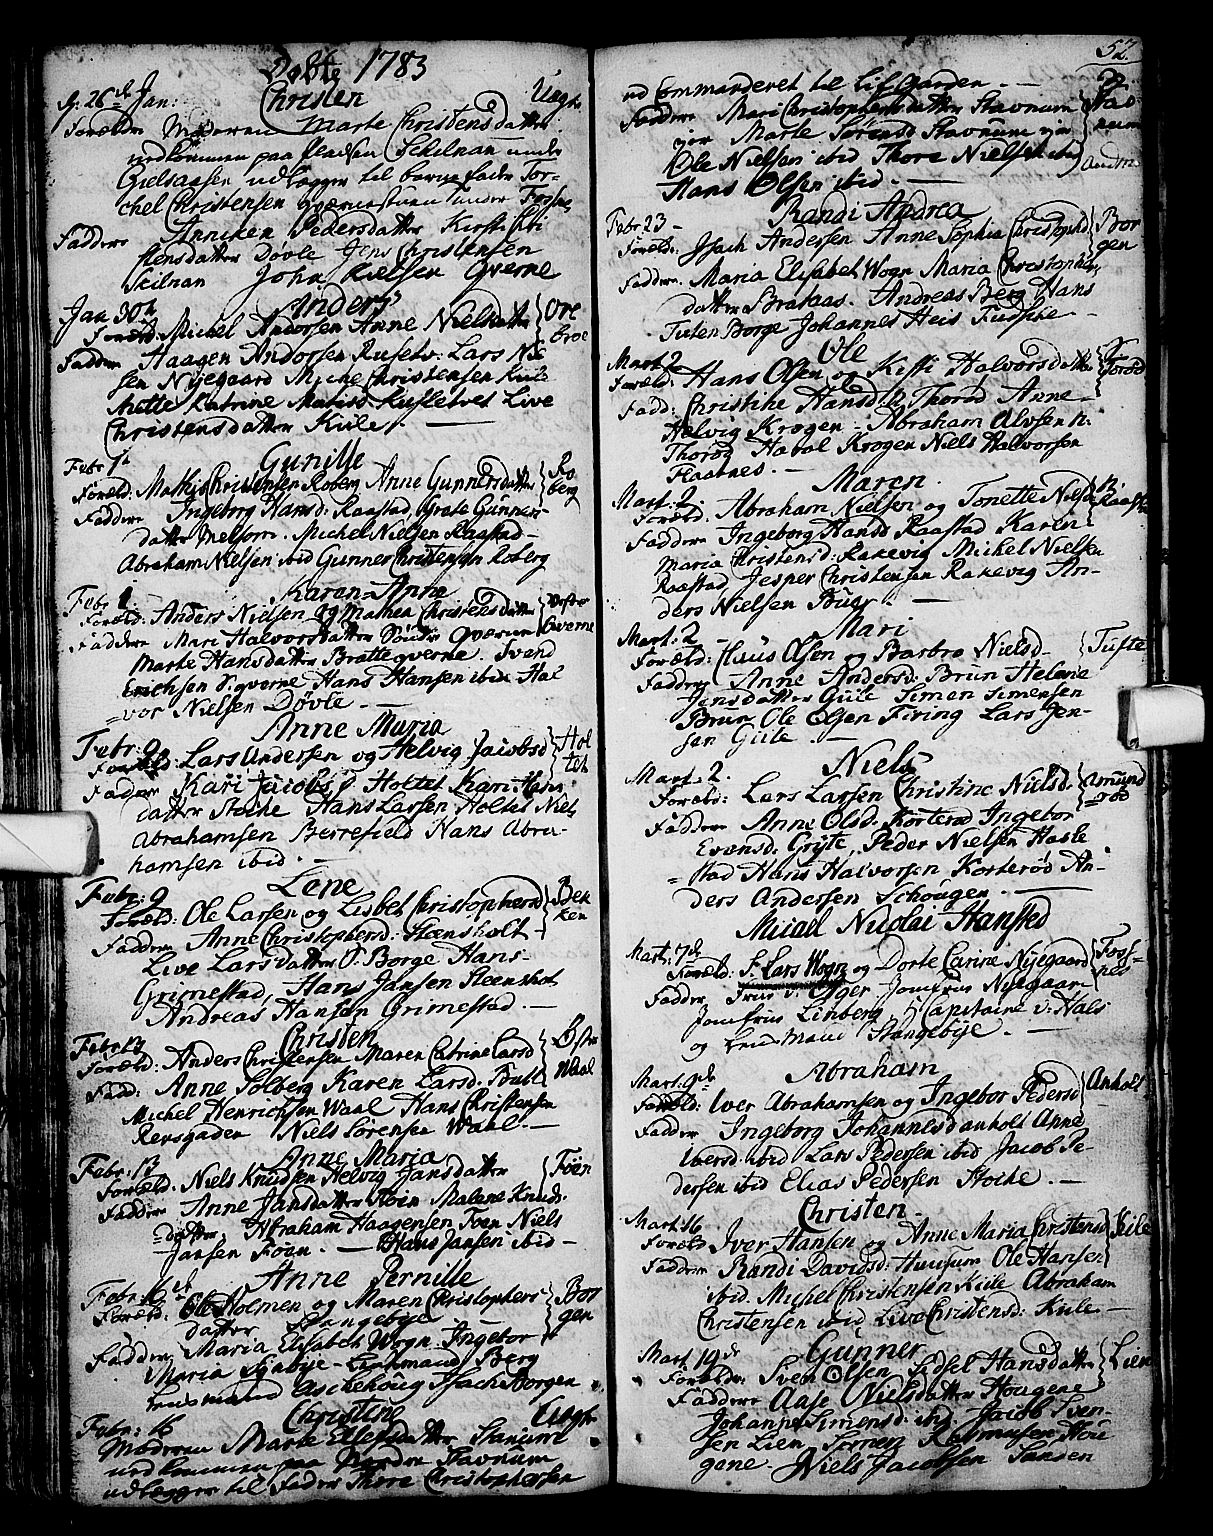 Døbte 1783
d: 26de Jan: Christen Uægte
Forældre Moderen Marte Christensdatter
nedkommen paa Pladsen Skilnan under
Gielsaasen udlægger til barne fader Tor-
chel Christensen qværnestuen under Fossnes
Faddere Anniken Pedersdatter Kirsti Chri
stensdatter Døvle Jens Christensen
Skilnan John Nielsen Qverne
Jan 30te Anders
Foreld: Michel Andersen Anne Nielsdatter Ore
broe
Faddere Haagen Andersen Rusetv: Lars Niel
sen Nyegaard Michel Christensen Kule
Mette Katrine Matisd Rusletvet Live
Christensdatter Kule. —
Febr 1te Gunille
Foreld: Mathis Christensen Roberg Anne Gunnersdatter Ro
berg
Faddere Ingeborg Hansd: Raastad, Grete Gunners
datter Melsom. Michel Nielsen Raastad —
Abraham Nielsen ibid Gunner Christensen Roberg
Febr 1 Karen Anne
Foreld: Anders Nielsen og Mathea Christensdatter Vestre
Qverne
Faddere Mari Halvorsdatter Søndre Qverne
Marte Hansdatter Bratteqverne. Svend
Erichsen S: qverne Hans Hansen ibid Hal
=vor Nielsen Døvle —
Febr: 9 Anne Maria
Foreld: Lars Andersen og Helvig Jacobsd Hol
tet
Faddere Kari Jacobsd Holtet Kari Hans
datter Stoke Hans Larsen Holtet Niels
Abrahamsen Beirefield Hans Abra-
hamsen ibid. —
Febr: 9 Lene
Foreld: Ole Larsen og Lisbet Christophersd Bek
ken
Faddere Anne Christophersd: Steensholt —
Live Larsdatter S: Borge Hans
Grimestad, Hans Jansen Steensholt
Andreas Hansen Grimestad —
Febr 13 Christen
Foreld: Anders Christensen Maren Catrine Larsd Østre
Waal
Fadd: Anne Solberg Karen Larsd.
Michel Henrichsen Waal Hans Christensen
Niels Sørensen Waal. —
Febr: 13 Anne Maria
Foreld: Niels Knudsen Helvig Jansdatter Foen
Faddere Anne Jansdatter Foen Malene Knuds
=datter Abraham Haagensen Foen Niels
Jansen Foen. — Hans Jansen ibid —
Febr: 16de Anne Pernille
Foreld: Ole Holmen og Maren Christophers Bor
gen
datter Stangebye
Faddere Maria Elisabet Wogn Ingebor
Maria Berg
Lensmand Aschehoug Isach Borgen
Febr: 16 Christine Uægte
Moderen Marte Ellefsdatter Stanum
nedkommen paa Nordre Stavnum
udlægger til Fader Thore Christophersen

52.
ud Commanderet til Lif Garden —
Faddere Mari Christophersdatter Stavnum Stav
num
Marte Sørensd Stavnum
Ole Nielsen ibid Thore Nielsen ibid
Hans Olsen ibid —
Febr 23 — Randi Andrea
Foreld: Isach Andersen Anne Sophia Christophd Bor
gen
Faddere Maria Elisabet Wogn Maria Christophers
datter Brakaas. Andreas Berg Hans
Tuten Borge Johannes Heis Fudsche —
Mart. 2 Ole
Foreld: Hans Olsen og Kissi Halvorsdatter Torød
Fadd: Christine Hansd N. Thorød Anne
Helvig Krogen — Abraham Alvsen N:
Thorød Haval Krogen Niels Halvorsen
Raatnes. —
Mart: 2. Maren
Foreld: Abraham Nielsen og Tonette Nielsd N.
Raastad
Faddere Ingeborg Hansd Raastad Karen
Maria Christensd: Rakevig Michel Nielsen
Raastad Jesper Christensen Rakevig An-
ders Nielsen Buer —
Mart: 2 Mari
Foreld: Claus Olsen og Barbro Nielsd — Tufte
Faddere Anne Andersd: Brun Helene
Jensdatter Gule Simen Simensen
Brun Ole Olsen Firing Lars Jen-
sen Gule. —
Mart: 2. Niels
Foreld: Lars Larsen Christine Nielsd. Amund
=rød
Faddere Anne Olsd. Korterød Ingebor
Evensd: Gryte, Peder Nielsen Hasle
=stad Hans Halvorsen Korterød An-
ders Andersen Schougen —
Michael Nicolai Hansted
Mart: 7de
Foreld: S: Lars Wogn og Dorte Carine Nyegaard Foss-
nes
Faddere Frue v: Olger Jomfrue Nyegaar
Jomfrue Linberg. H: Capitaine v: Hals
og Lensmand Stangebye. —
Mart. 9de Abraham
Foreld: Iver Abrahamsen og Ingebor Pedersd Anholt
Faddere Ingeborg Johannesd Anholt Anne
Iversd. ibid Lars Pedersen ibid Jacob Pe-
dersen ibid Elias Pedersen Stoke. —
Mart: 16 Christen
Foreld: Iver Hansen og Anne Maria Christensd Kule
Faddere Randi Davidsd: Huusum Ole Hansen
ibid. Michel Christensen Kule Abraham
Christensen ibid, Live Christensd: Kule. —
Mart. 19de Gunner
Foreldr: Sven Olsen Sidsel Hansdatter Lien
Faddere Aase Nielsdatter Hougene
Johanne Simensd: ibid. Jacob Sven-
sen Lien Simen Rasmusen Hou
gene. — Niels Jacobsen Sanden